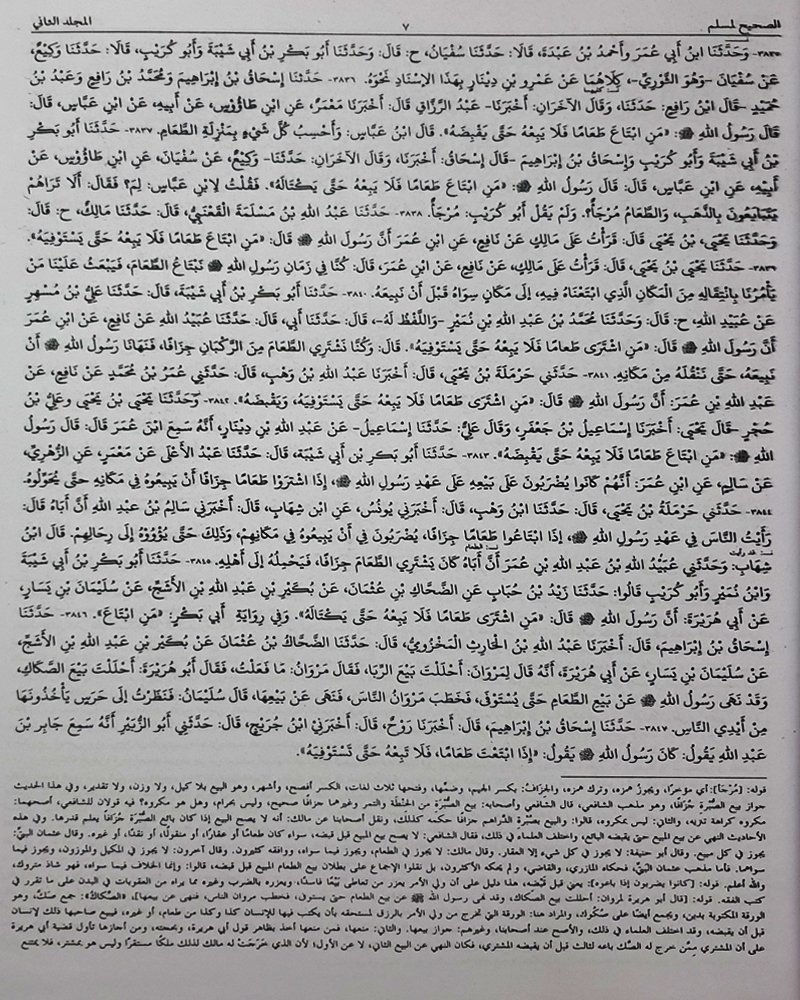 الصحيح لمسلم ٧ المجلد الثاني
٣٨٣٥- وَحَدَّثَنَا ابنُ أَبِي عُمَرَ وأَحْمَدُ بْنُ عَبْدَةَ، قَالَا: حَدَّثَنَا سُفْيَانُ، ح: قَالَ: وَحَدَّثَنَا أَبُو بَكْرِ بْنُ أَبِي شَيْبَةَ وَأَبُو كُرَيْبٍ، قَالَا: حَدَّثَنَا وَكِيْعٌ،
عَنْ سُفْيَانَ -وَهُوَ الثَّوْرِيُّ-، كِلَاهُمَا عَنْ عَمْرِو بْنِ دِيْنَارٍ بِهَذَا الِاسْنَادِ نَحْوَهُ. ٣٨٣٦- حَدَّثَنَا إِسْحَاقُ بْنُ إِبْرَاهِيمَ وَمُحَمَّدُ بْنُ رَافِعٍ وَعَبْدُ بْنُ
حُمَيْدٍ -قَالَ ابْنُ رَافِعٍ: حَدَّثَنَا، وَقَالَ الآخَرَانِ: أَخْبَرَنَا- عَبْدُ الرَّزَّاقِ قَالَ: أَخْبَرَنَا مَعْمَرٌ، عَنِ ابْنِ طَاؤُوْسٍ، عَنْ أَبِيْهِ، عَنِ ابْنِ عَبَّاسٍ، قَالَ:
قَالَ رَسُولُ اللهِ ﷺ: «مَنِ ابْتَاعَ طَعَامًا فَلَا يَبِعْهُ حَتَّى يَقْبِضَهُ». قَالَ ابْنُ عَبَّاسٍ: وَأَحْسِبُ كُلَّ شَيْءٍ بِمَنْزِلَةِ الطَّعَامِ. ٣٨٣٧- حَدَّثَنَا أَبُو بَكْرِ
بْنُ أَبِي شَيْبَةَ وَأَبُو كُرَيْبٍ وَإِسْحَاقُ بْنُ إِبْرَاهِيمَ -قَالَ إِسْحَاقُ: أَخْبَرَنَا، وَقَالَ الآخَرَانِ: حَدَّثَنَا- وَكِيْعٌ، عَنْ سُفْيَانَ، عَنِ ابْنِ طَاؤُوْسٍ، عَنْ
أَبِيْهِ، عَنِ ابْنِ عَبَّاسٍ، قَالَ: قَالَ رَسُولُ اللهِ ﷺ: «مَنِ ابْتَاعَ طَعَامًا فَلَا يَبِعْهُ حَتَّى يَكْتَالَهُ». فَقُلْتُ لِابْنِ عَبَّاسٍ: لِمَ؟ فَقَالَ: أَلَا تَرَاهُمْ
يَتَبَايَعُونَ بِالذَّهَبِ، وَالطَّعَامُ مُرْجَأٌ؟. وَلَمْ يَقُلْ أَبُو كُرَيْبٍ: مُرْجَأٌ. ٣٨٣٨- حَدَّثَنَا عَبْدُ اللهِ بْنُ مَسْلَمَةَ الْقَعْنَبِيُّ، قَالَ: حَدَّثَنَا مَالِكٌ، ح: قَالَ:
وَحَدَّثَنَا يَحْيَى، بْنُ يَحْيَى قَالَ: قَرَأْتُ عَلَى مَالِكٍ عَنْ نَافِعٍ، عَنِ ابْنِ عُمَرَ أَنَّ رَسُولَ اللهِ ﷺ قَالَ: «مَنِ ابْتَاعَ طَعَامًا فَلَا يَبِعْهُ حَتَّى يَسْتَوْفِيَهُ».
٣٨٣٩- حَدَّثَنَا يَحْيَى بْنُ يَحْيَى، قَالَ: قَرَأْتُ عَلَى مَالِكٍ، عَنْ نَافِعٍ، عَنِ ابْنِ عُمَرَ، قَالَ: كُنَّا فِي زَمَانِ رَسُولِ اللهِ ﷺ نَبْتَاعُ الطَّعَامَ، فَيَبْعَثُ عَلَيْنَا مَنْ
يَأْمُرُنَا بِانْتِقَالِهِ مِنَ الْمَكَانِ الَّذِي ابْتَعْنَاهُ فِيهِ، إِلَى مَكَانٍ سِوَاهُ قَبْلَ أَنْ نَبِيعَهُ. ٣٨٤٠- حَدَّثَنَا أَبُو بَكْرِ بْنُ أَبِي شَيْبَةَ، قَالَ: حَدَّثَنَا عَلِيُّ بْنُ مُسْهِرٍ
عَنْ عُبَيْدِ اللهِ، ح: قَالَ: وَحَدَّثَنَا مُحَمَّدُ بْنُ عَبْدِ اللهِ بْنِ نُمَيْرٍ -وَاللَّفْظُ لَهُ-، قَالَ: حَدَّثَنَا أَبِي، قَالَ: حَدَّثَنَا عُبَيْدُ اللهِ عَنْ نَافِعٍ، عَنْ ابْنِ عُمَرَ
أَنَّ رَسُولَ اللهِ ﷺ قَالَ: «مَنِ اشْتَرَى طَعَامًا فَلَا يَبِعْهُ حَتَّى يَسْتَوْفِيَهُ». قَالَ: وَكُنَّا نَشْتَرِي الطَّعَامَ مِنَ الرُّكْبَانِ جِزَافًا، فَنَهَانَا رَسُولُ اللهِ ﷺ أَنْ
نَبِيعَهُ، حَتَّى نَنْقُلَهُ مِنْ مَكَانِهِ. ٣٨٤١- حَدَّثَنِي حَرْمَلَةُ بْنُ يَحْيَى، قَالَ: أَخْبَرَنَا عَبْدُ اللهِ بْنُ وَهْبٍ، قَالَ: حَدَّثَنِي عُمَرُ بْنُ مُحَمَّدٍ عَنْ نَافِعٍ، عَنْ
عَبْدِ اللهِ بْنِ عُمَرَ: أَنَّ رَسُولَ اللهِ ﷺ قَالَ: «مَنِ اشْتَرَى طَعَامًا فَلَا يَبِعْهُ حَتَّى يَسْتَوْفِيَهُ، وَيَقْبِضَهُ». ٣٨٤٢- وَحَدَّثَنَا يَحْيَى بْنُ يَحْيَى وَعَلِيُّ بْنُ
حُجْرٍ -قَالَ يَحْيَى: أَخْبَرَنَا إِسْمَاعِيلُ بْنُ جَعْفَرٍ، وَقَالَ عَلِيٌّ: حَدَّثَنَا إِسْمَاعِيلُ- عَنْ عَبْدِ اللهِ بْنِ دِيْنَارٍ، أَنَّهُ سَمِعَ ابْنَ عُمَرَ قَالَ: قَالَ رَسُولُ
اللهِ ﷺ: «مَنِ ابْتَاعَ طَعَامًا فَلَا يَبِعْهُ حَتَّى يَقْبِضَهُ». ٣٨٤٣- حَدَّثَنَا أَبُو بَكْرِ بْنِ أَبِي شَيْبَةَ، قَالَ: حَدَّثَنَا عَبْدُ الأَعْلَى عَنْ مَعْمَرٍ، عَنِ الزُّهْرِيِّ،
عَنْ سَالِمٍ، عَنِ ابْنِ عُمَرَ: أَنَّهُمْ كَانُوا يُضْرَبُونَ عَلَى بَيْعِهِ عَلَى عَهْدِ رَسُولِ اللهِ ﷺ، إِذَا اشْتَرَوْا طَعَامًا جِزَافًا أَنْ يَبِيعُوهُ فِي مَكَانِهِ حَتَّى يُحَوِّلُوهُ.
٣٨٤٤- حَدَّثَنِي حَرْمَلَةُ بْنُ يَحْيَى، قَالَ: حَدَّثَنَا ابْنُ وَهْبٍ، قَالَ: أَخْبَرَنِي يُونُسُ، عَنِ ابْنِ شِهَابٍ، قَالَ: أَخْبَرَنِي سَالِمُ بْنُ عبدِ اللهِ أَنَّ أَبَاهُ قَالَ:
رَأَيْتُ النَّاسَ فِي عَهْدِ رَسُولِ اللهِ ﷺ، إِذَا ابْتَاعُوا طَعَامًا جِزَافًا، يُضْرَبُونَ فِي أَنْ يَبِيعُوهُ فِي مَكَانِهِمْ، وَذَلِكَ حَتَّى يُؤْوُوْهُ إِلَى رِحَالِهِمْ. قَالَ ابْنُ
شِهَابٍ: وَحَدَّثَنِي عُبَيْدُ اللهِ بْنُ عَبْدِ اللهِ بْنِ عُمَرَ أَنَّ أَبَاهُ كَانَ يَشْتَرِي الطَّعَامَ جِزَافًا، فَيَحْمِلُهُ إِلَى أَهْلِهِ. ٣٨٤٥- حَدَّثَنَا أَبُو بَكْرِ بْنُ أَبِي شَيْبَةَ
وَابْنُ نُمَيْرٍ وَأَبُو كُرَيْبٍ قَالُوا: حَدَّثَنَا زَيْدُ بْنُ حُبَابٍ عَنِ الضَّحَّاكِ بْنِ عُثْمَانَ، عَنْ بُكَيْرِ بْنِ عَبْدِ اللهِ بْنِ الأَشَجِّ، عَنْ سُلَيْمَانَ بْنِ يَسَارٍ،
عَنْ أَبِي هُرَيْرَةَ: أَنَّ رَسُولَ اللهِ ﷺ قَالَ: «مَنِ اشْتَرَى طَعَامًا فَلَا يَبِعْهُ حَتَّى يَكْتَالَهُ». وَفِي رِوَايَةِ أَبِي بَكْرٍ: «مَنِ ابْتَاعَ». ٣٨٤٦- حَدَّثَنَا
إِسْحَاقُ بْنُ إِبْرَاهِيمَ، قَالَ: أَخْبَرَنَا عَبْدُ اللهِ بْنُ الْحَارِثِ الْمَخْزُومِيُّ، قَالَ: حَدَّثَنَا الضَّحَّاكُ بْنُ عُثْمَانَ عَنْ بُكَيْرِ بْنِ عَبْدِ اللهِ بْنِ الأَشَجِّ،
عَنْ سُلَيْمَانَ بْنِ يَسَارٍ، عَنْ أَبِي هُرَيْرَةَ، أَنَّهُ قَالَ لِمَرْوَانَ: أَحْلَلْتَ بَيْعَ الرِّبَا، فَقَالَ مَرْوَانُ: مَا فَعَلْتُ، فَقَالَ أَبُو هُرَيْرَةَ: أَحْلَلْتَ بَيْعَ الصِّكَاكِ،
وَقَدْ نَهَى رَسُولُ اللهِ ﷺ عَنْ بَيْعِ الطَّعَامِ حَتَّى يُسْتَوْفَى، فَخَطَبَ مَرْوَانُ النَّاسَ، فَنَهَى عَنْ بَيْعِهَا، قَالَ سُلَيْمَانُ: فَنَظَرْتُ إِلَى حَرَسٍ يَأْخُذُونَهَا
مِنْ أَيْدِي النَّاسِ. ٣٨٤٧- حَدَّثَنَا إِسْحَاقُ بْنُ إِبْرَاهِيمَ، قَالَ: أَخْبَرَنَا رَوْحٌ، قَالَ: أَخْبَرَنَيْ ابْنُ جُرَيْجٍ، قَالَ: حَدَّثَنِي أَبُو الزُّبَيْرِ أَنَّهُ سَمِعَ جَابِرَ بْنَ
عَبْدِ اللهِ يَقُولُ: كَانَ رَسُولُ اللهِ ﷺ يَقُولُ: «إِذَا ابْتَعْتَ طَعَامًا، فَلَا تَبِعْهُ حَتَّى تَسْتَوْفِيَهُ».
قوله: [مُرْجَأ]: أي مؤخرًا، ويجوز همزه، وترك همزه، والجِزَافُ: بكسر الجيم، وضمِّها، وفتحها ثلاث لغات، الكسر أفصح، وأشهر، وهو البيع بلا كيل، ولا وزن، ولا تقدير، وفي هذا الحديث
جواز بيع الصُّبْرَة جُزَافًا، وهو مذهب الشافعي، قال الشافعي وأصحابه: بيع الصُّبْرَة من الحنْطَة والتمر وغيرهما جزافًا صحيح، وليس بحرام، وهل هو مكروه؟ فيه قولان للشافعي، أصحهما:
مكروه كراهة تنزيه، والثاني: ليس بمكروه، قالوا: والبيع بصبْرَة الدَّراهم جزافًا حكمه كذلك، ونقل أصحابنا عن مالك: أنه لا يصح البيع إذا كان بائع الصُّبْرَة جزافًا يعلم قدرها. وفي هذه
الأحاديث النهي عن بيع المبيع حتى يقبضه البائع، واختلف العلماء في ذلك، فقال الشافعي: لا يصح بيع المبيع قبل قبضه، سواء كان طعامًا أو عقارًا، أو منقولًا، أو نقدًا، أو غيره. وقال عثمان البتِّيُّ:
يجوز في كل مبيع. وقال أبو حنيفة: لا يجوز في كل شيء إلا العقار. وقال مالك: لا يجوز في الطعام، ويجوز فيما سواه، ووافقه كثيرون. وقال آخرون: لا يجوز في المكيل والموزون، ويجوز فيما
سواهما. فأما مذهب عثمان البَتِّيِّ، فحكاه المازري، والقاضي، ولم يحكه الأكثرون، بل نقلوا الإجماع على بطلان بيع الطعام المبيع قبل قبضه، قالوا: وإنما الخلاف فيما سواه، فهو شاذ متروك،
والله أعلم. قوله: [كانوا يضربون إذا باعوه]: يعني قبل قبضه، هذا دليل على أن ولي الأمر يعزر من تعاطى بَيْعًا فاسدًا، ويعزره بالضرب وغيره مما يراه من العقوبات في البدن على ما تقرر في
كتب الفقه. قوله: [قال أبو هريرة لمروان: أحللت بيع الصكاك، وقد نهى رسول الله ﷺ عن بيع الطعام حتى يستوفى، فخطب مروان الناس، فنهى عن بيعها]، «الصِّكَاك»: جمع صَكٍّ، وهو
الورقة المكتوبة بدين، ويجمع أيضًا على صُكُوك، والمراد هنا: الورقة التي تخرج من ولي الأمر بالرزق لمستحقه بأن يكتب فيها للإنسان كذا وكذا من طعام، أو غيره، فيبيع صاحبها ذلك لإنسان
قبل أن يقبضه، وقد اختلف العلماء في ذلك، والأصح عند أصحابنا، وغيرهم: جواز بيعها. والثاني: منعها، فمن منعها أخذ بظاهر قول أبي هريرة، وبحجته، ومن أجازها تأول قضية أبي هريرة
على أن المشتري مِمَّن خرج له الصَّك باعه لثالث قبل أن يقبضه المشتري، فكان النهي عن البيع الثاني، لا عن الأول؛ لأن الذي خَرَجَتْ له مالك لذلك ملكًا مستقرًا وليس هو بمشتر، فلا يمتنع